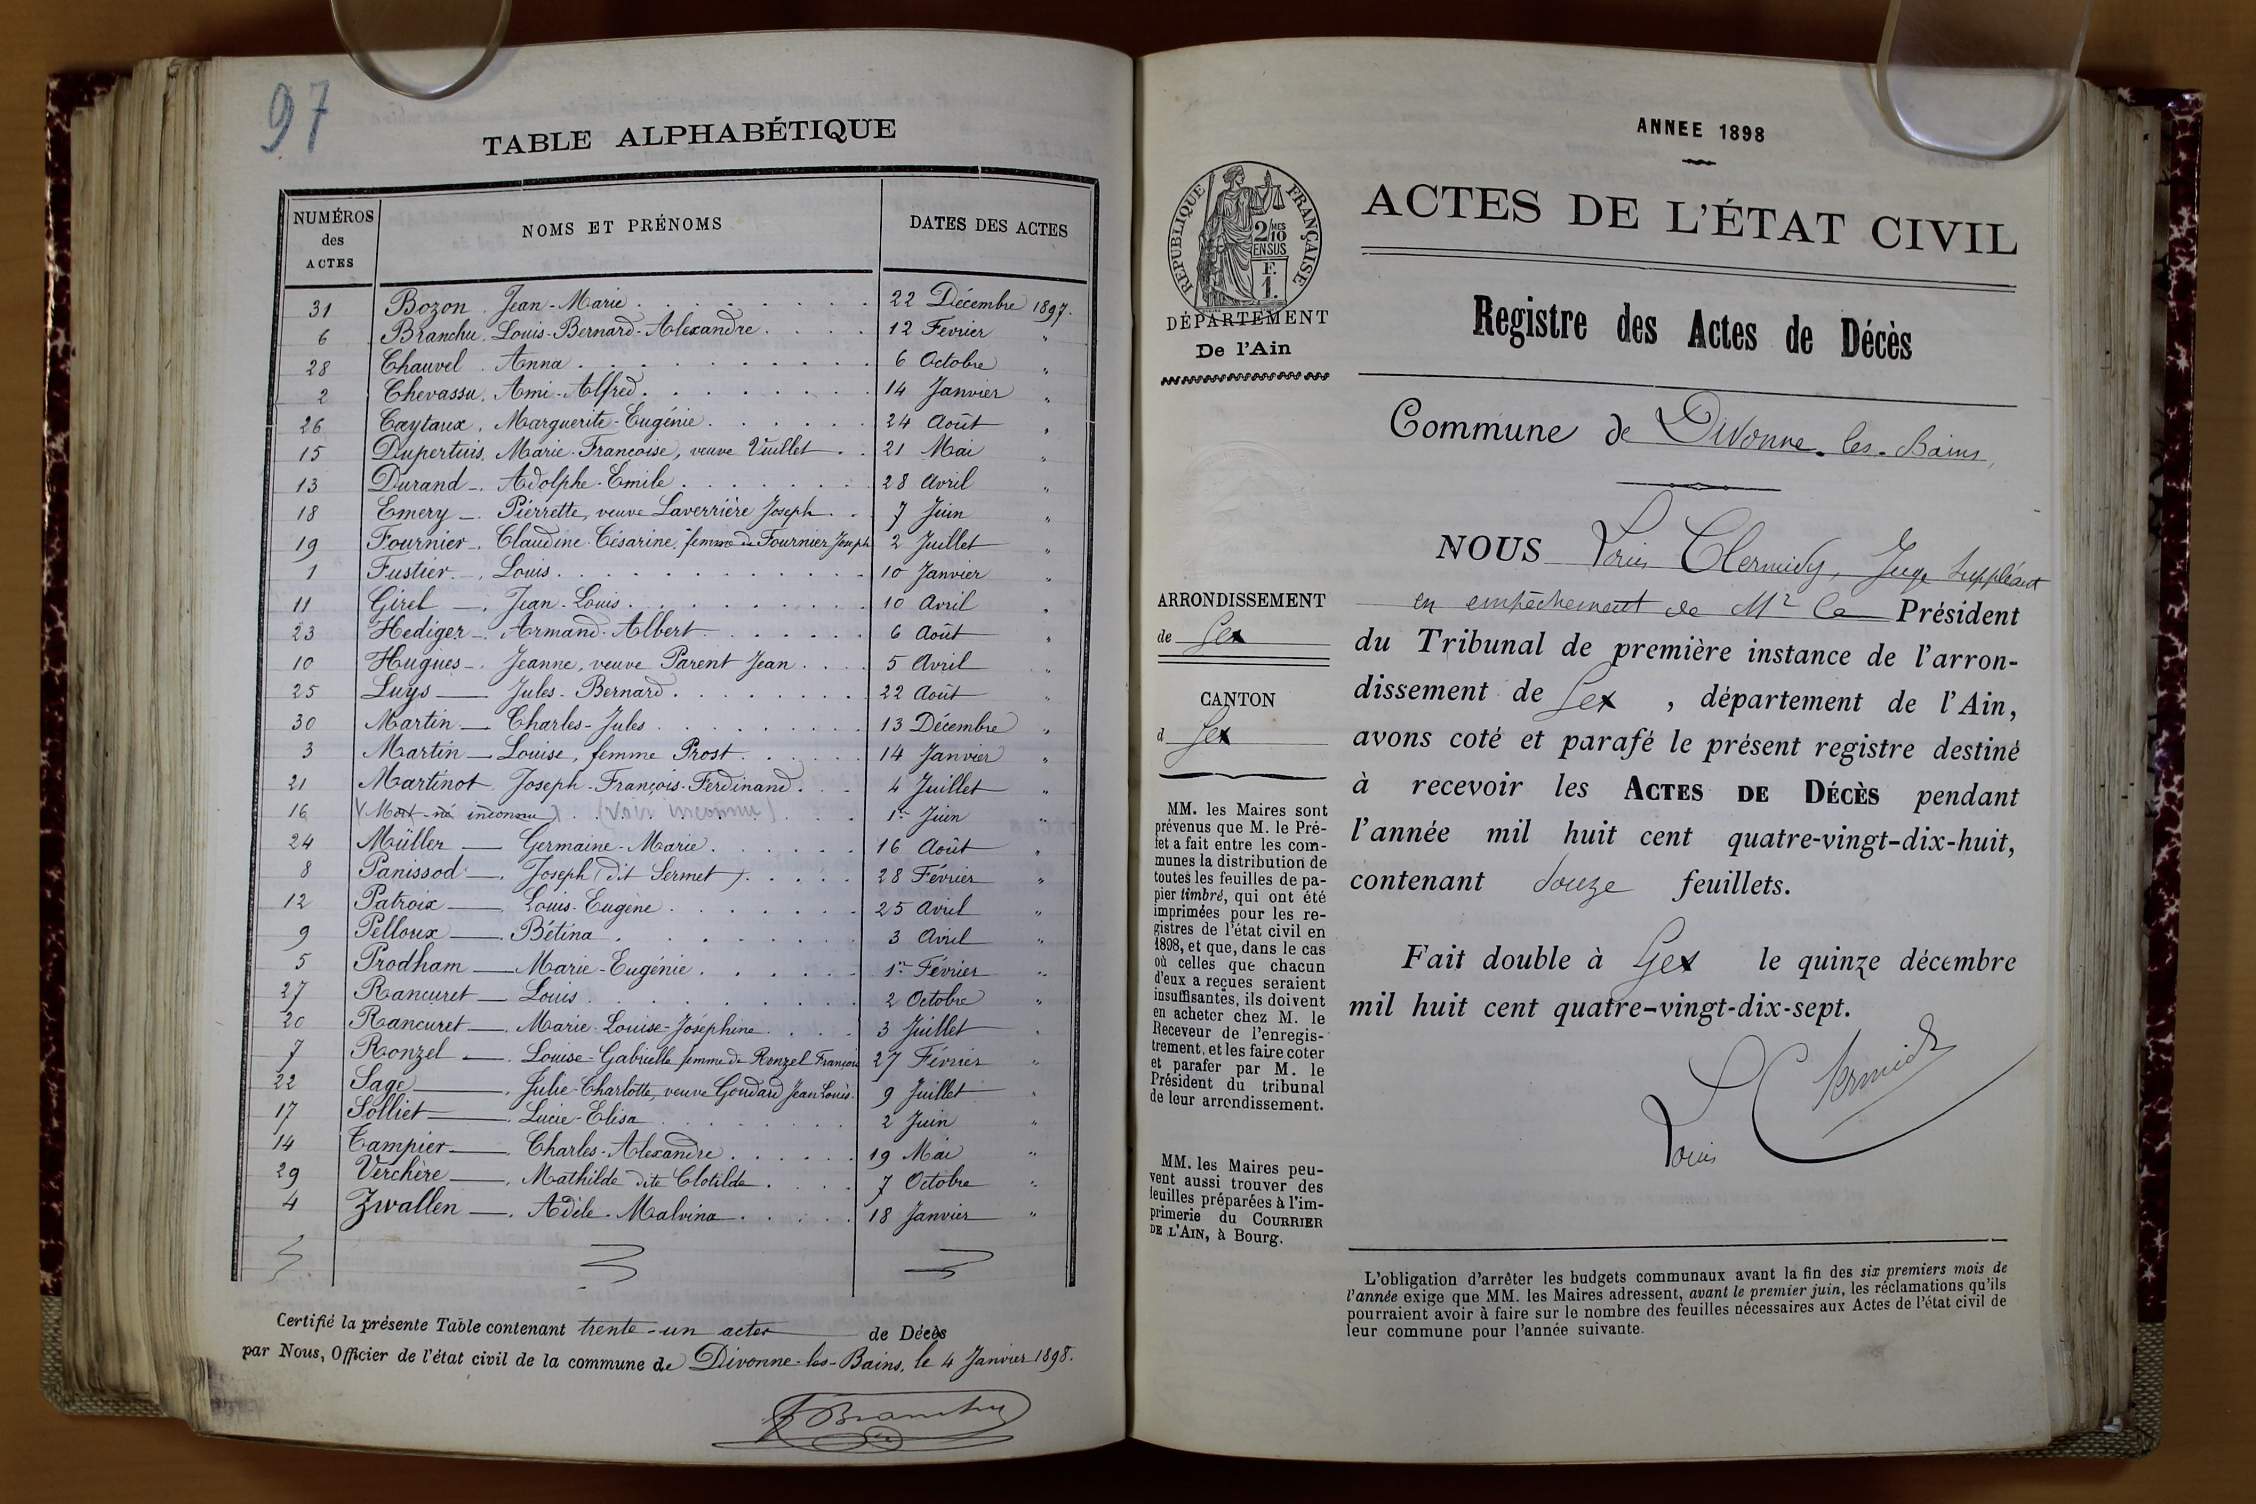 97
TABLE ALPHABÉTIQUE
NUMÉROS des ACTES
NOMS ET PRÉNOMS
DATES DES ACTES
31 Bozon. Jean-Marie 22 Décembre 1897.
6 Branchu. Louis-Bernard-Alexandre 12 Février "
28 Chauvel. Anna 6 Octobre "
2 Chevassu. Ami-Alfred 14 Janvier "
26 Caytaux. Marguerite-Eugénie 24 Août "
15 Dupertuis. Marie-Françoise, veuve Vuillet 21 Mai "
13 Durand. Adolphe-Emile 28 Avril "
18 Emery. Pierrette, veuve Laverrière Joseph 7 Juin "
19 Fournier. Claudine-Césarine, femme de Fournier Joseph 2 Juillet "
1 Fustier. Louis 10 Janvier "
11 Girel. Jean-Louis 10 Avril "
23 Hediger. Armand-Albert 6 Août "
10 Hugues. Jeanne, veuve Parent Jean 5 Avril "
25 Luys Jules-Bernard 22 Août "
30 Martin Charles-Jules 13 Décembre "
3 Martin Louise, femme Prost 14 Janvier "
21 Martinot Joseph-François-Ferdinand 4 Juillet "
16 Mort-né inconnu 1er Juin "
24 Müller Germaine-Marie 16 Août "
8 Panissod. Joseph (dit Sermet) 28 Février "
12 Patroix Louis-Eugène 25 Avril "
9 Pelloux. Bétina 3 Avril "
5 Prodham Marie-Eugénie 1er Février "
27 Rancuret Louis 2 Octobre "
20 Rancuret. Marie-Louise-Joséphine 3 Juillet "
7 Ronzel. Louise-Gabrielle femme de Ronzel François 27 Février "
22 Sage. Julie-Charlotte, veuve Goudard Jean Louis 9 Juillet "
17 Solliet. Lucie-Elisa 2 Juin "
14 Tampier. Charles-Alexandre 19 Mai "
29 Verchère. Mathilde dite Clotilde 7 Octobre "
4 Zwallen. Adèle-Malvina 18 Janvier "
Certifié la présente Table contenant trente-un actes de Décès
par Nous, Officier de l'état civil de la commune de Divonne-les-Bains, le 4 Janvier 1898.
Branchu
ANNEE 1898
RÉPUBLIQUE FRANÇAISE
2/10 MES
EN SUS
F.
1.
DÉPARTEMENT
De l'Ain
ACTES DE L'ÉTAT CIVIL
Registre des Actes de Décès
Commune de Divonne-les-Bains
ARRONDISSEMENT
de Gex
CANTON
d Gex
MM. les Maires sont
prévenus que M. le Pré-
fet a fait entre les com-
munes la distribution de
toutes les feuilles de pa-
pier timbré, qui ont été
imprimées pour les re-
gistres de l'état civil en
1898, et que, dans le cas
où celles que chacun
d'eux a reçues seraient
insuffisantes, ils doivent
en acheter chez M. le
Receveur de l'enregis-
trement, et les faire coter
et parafer par M. le
Président du tribunal
de leur arrondissement.
MM. les Maires peu-
vent aussi trouver des
feuilles préparées à l'im-
primerie du COURRIER
DE L'AIN, à Bourg.
NOUS Louis Clermidy, Juge Suppléant
en empêchement de Mr le Président
du Tribunal de première instance de l'arron-
dissement de Gex, département de l'Ain,
avons coté et parafé le présent registre destiné
à recevoir les ACTES DE DÉCÈS pendant
l'année mil huit cent quatre-vingt-dix-huit,
contenant douze feuillets.
Fait double à Gex le quinze décembre
mil huit cent quatre-vingt-dix-sept.
Louis Clermidy
L'obligation d'arrêter les budgets communaux avant la fin des six premiers mois de
l'année exige que MM. les Maires adressent, avant le premier juin, les réclamations qu'ils
pourraient avoir à faire sur le nombre des feuilles nécessaires aux Actes de l'état civil de
leur commune pour l'année suivante.